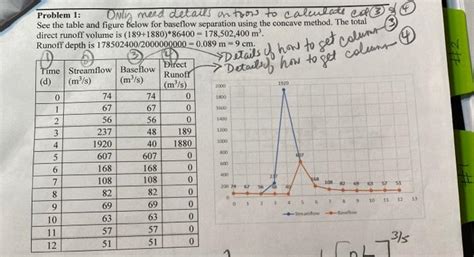 Only need details on how to calculate col ③ & ④
Problem 1:
See the table and figure below for baseflow separation using the concave method. The total
direct runoff volume is (189+1880)*86400 = 178,502,400 m³.
Runoff depth is 178502400/2000000000 = 0.089 m = 9 cm.
→ Details of how to get column ③
→ Details of how to get column ④
① ② ③ ④
Time (d) Streamflow (m³/s) Baseflow (m³/s) Direct Runoff (m³/s)
0 74 74 0
1 67 67 0
2 56 56 0
3 237 48 189
4 1920 40 1880
5 607 607 0
6 168 168 0
7 108 108 0
8 82 82 0
9 69 69 0
10 63 63 0
11 57 57 0
12 51 51 0
2000
1800
1600
1400
1200
1000
800
600
400
200
0
1920
607
237
74 67 56 48 40 168 108 82 69 63 57 51
0 1 2 3 4 5 6 7 8 9 10 11 12 13
Streamflow Baseflow
3/5